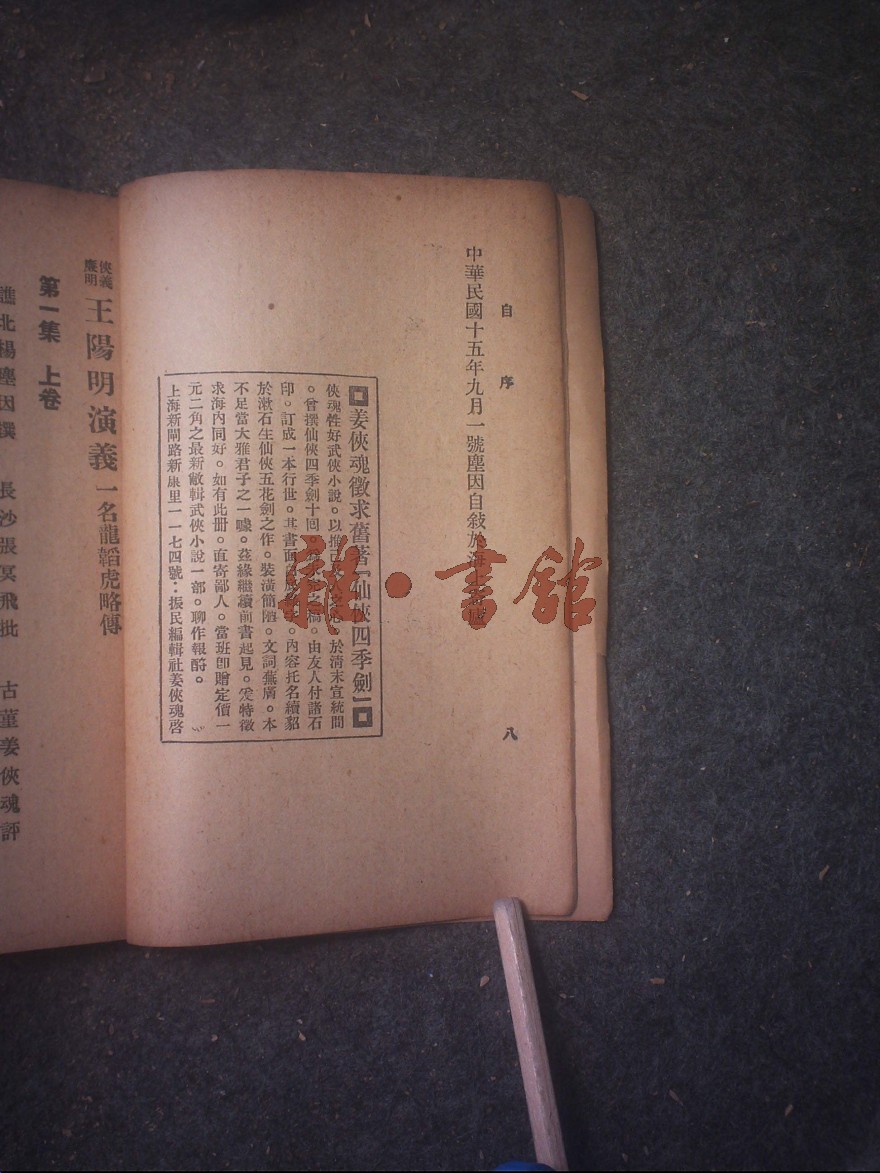 自序
八
中華民國十五年九月一號塵因自敍於海上
姜俠魂徵求舊著『仙俠四季劍』
俠魂性好武俠小說。以推己及人之心。於清末宣統間
。曾撰仙俠四季劍十回。之稿。由友人付諸石
印。訂成一本行世。其書面。內容托名續貂
於漱石生仙俠五花劍之作。裝潢簡陋。文詞蕪雜。本
不足當大雅君子之一噱。茲緣繼續前書起見。爰特徵
求海內同好。如有此册。直寄鄙人。當班卽贈定價一
元二角之最新敝輯武俠小說一部。聊作報酧。
上海新閘路新康里一一七四號:振民編輯社姜俠魂啓
俠義廉明 王陽明演義 一名龍韜虎略傳
第一集 上卷
譙北楊塵因撰 長沙張冥飛批 古董姜俠魂評
雜·書館